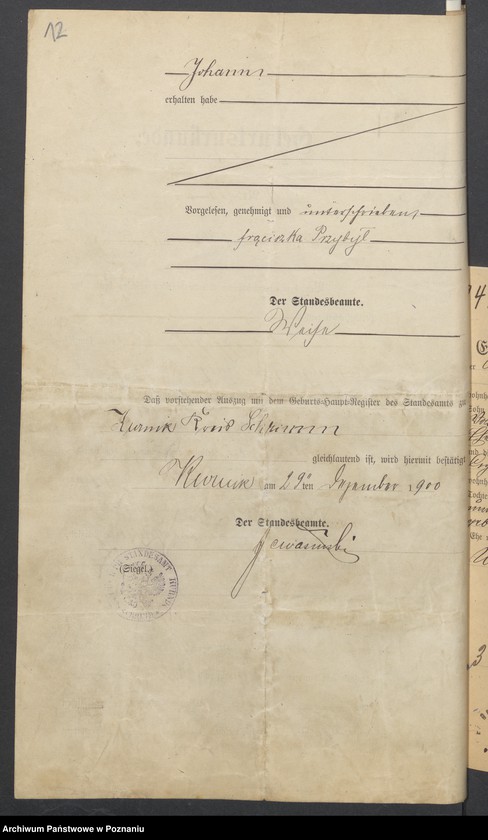 12
Johann
erhalten habe
Vorgelesen, genehmigt und unterschrieben,
Franciszka Przybył
Der Standesbeamte.
Weise
Daß vorstehender Auszug mit dem Geburts-Haupt-Register des Standesamts zu
Kurnik Kreis Schrimm
gleichlautend ist, wird hiermit bestätigt
Kurnik am 29ten Dezember 1900
Der Standesbeamte.
(Siegel.)
STANDESAMT
Archiwum Państwowe w Poznaniu